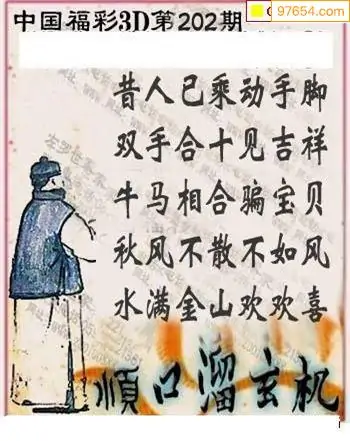 中国福彩3D第202期
97654.com
昔人已乘动手脚
双手合十见吉祥
牛马相合骗宝贝
秋风不散不如风
水满金山欢欢喜
順口溜玄机